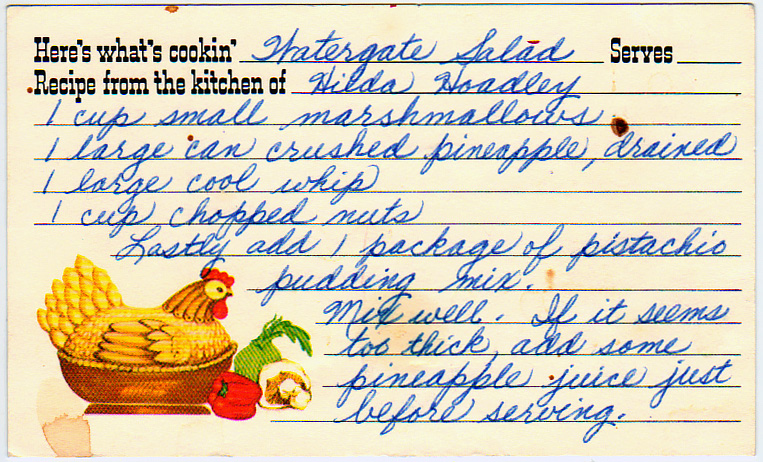 Here's what's cookin' Watergate Salad Serves
Recipe from the kitchen of Hilda Hoadley
1 cup small marshmallows
1 large can crushed pineapple, drained
1 large cool whip
1 cup chopped nuts
Lastly add 1 package of pistachio
pudding mix.
Mix well. If it seems
too thick, add some
pineapple juice just
before serving.